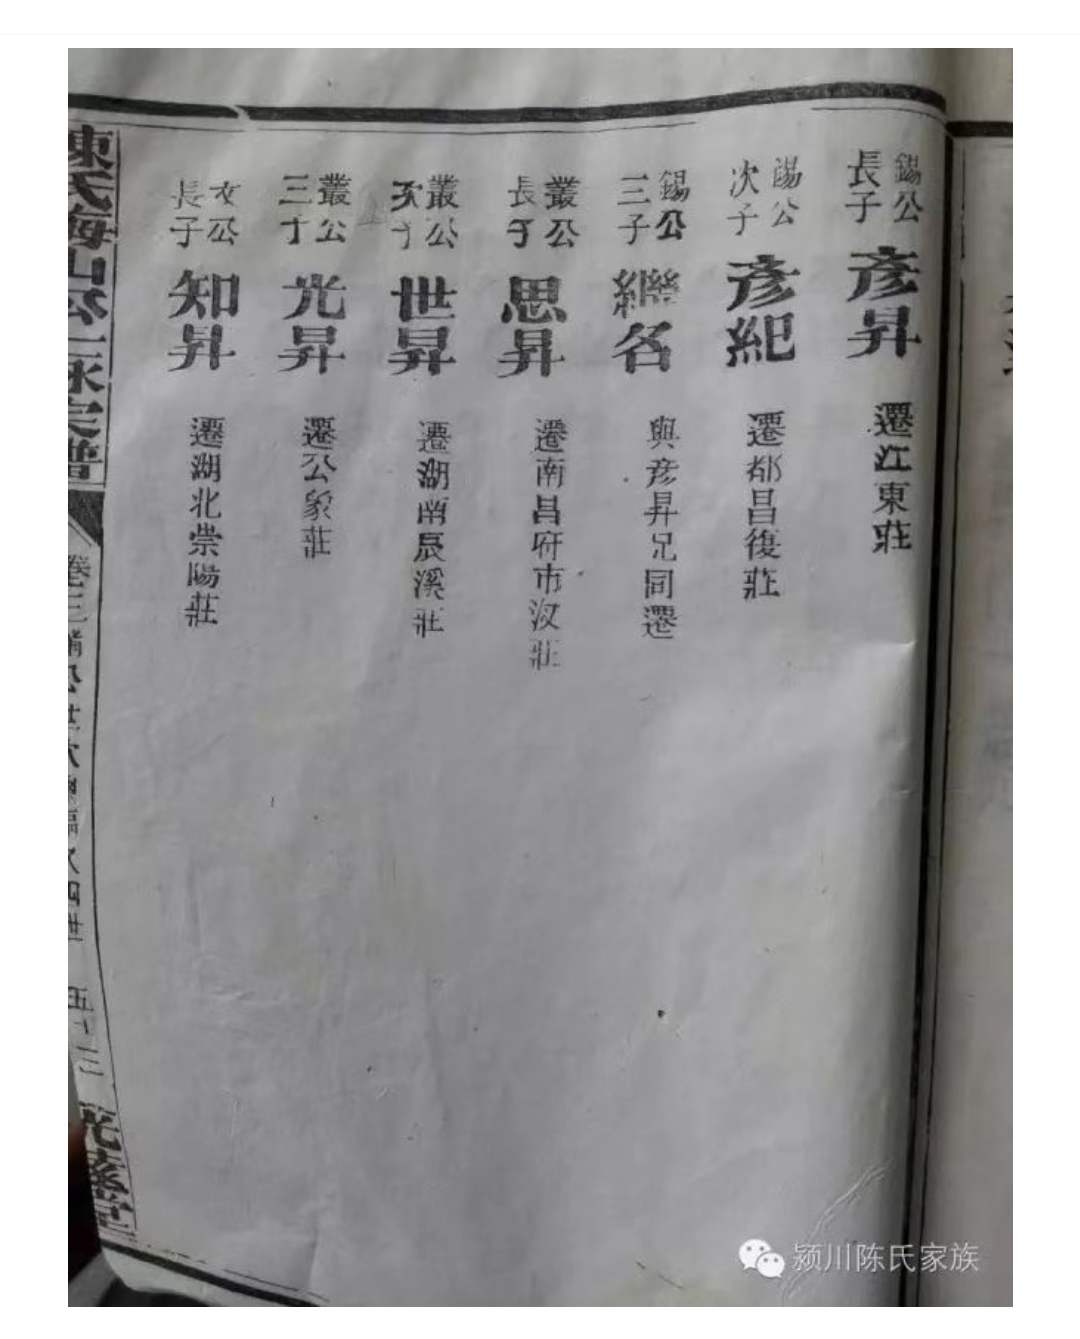 錫公
長子
彥昇
遷江東莊
錫公
次子
彥紀
遷都昌復莊
錫公
三子
繼名
與彥昇兄同遷
叢公
長子
思昇
遷南昌府市汊莊
叢公
次子
世昇
遷湖南辰溪莊
叢公
三子
光昇
遷公象莊
文公
長子
知昇
遷湖北崇陽莊
陳氏海山公一脉宗譜
卷三
五十三
颍川陈氏家族